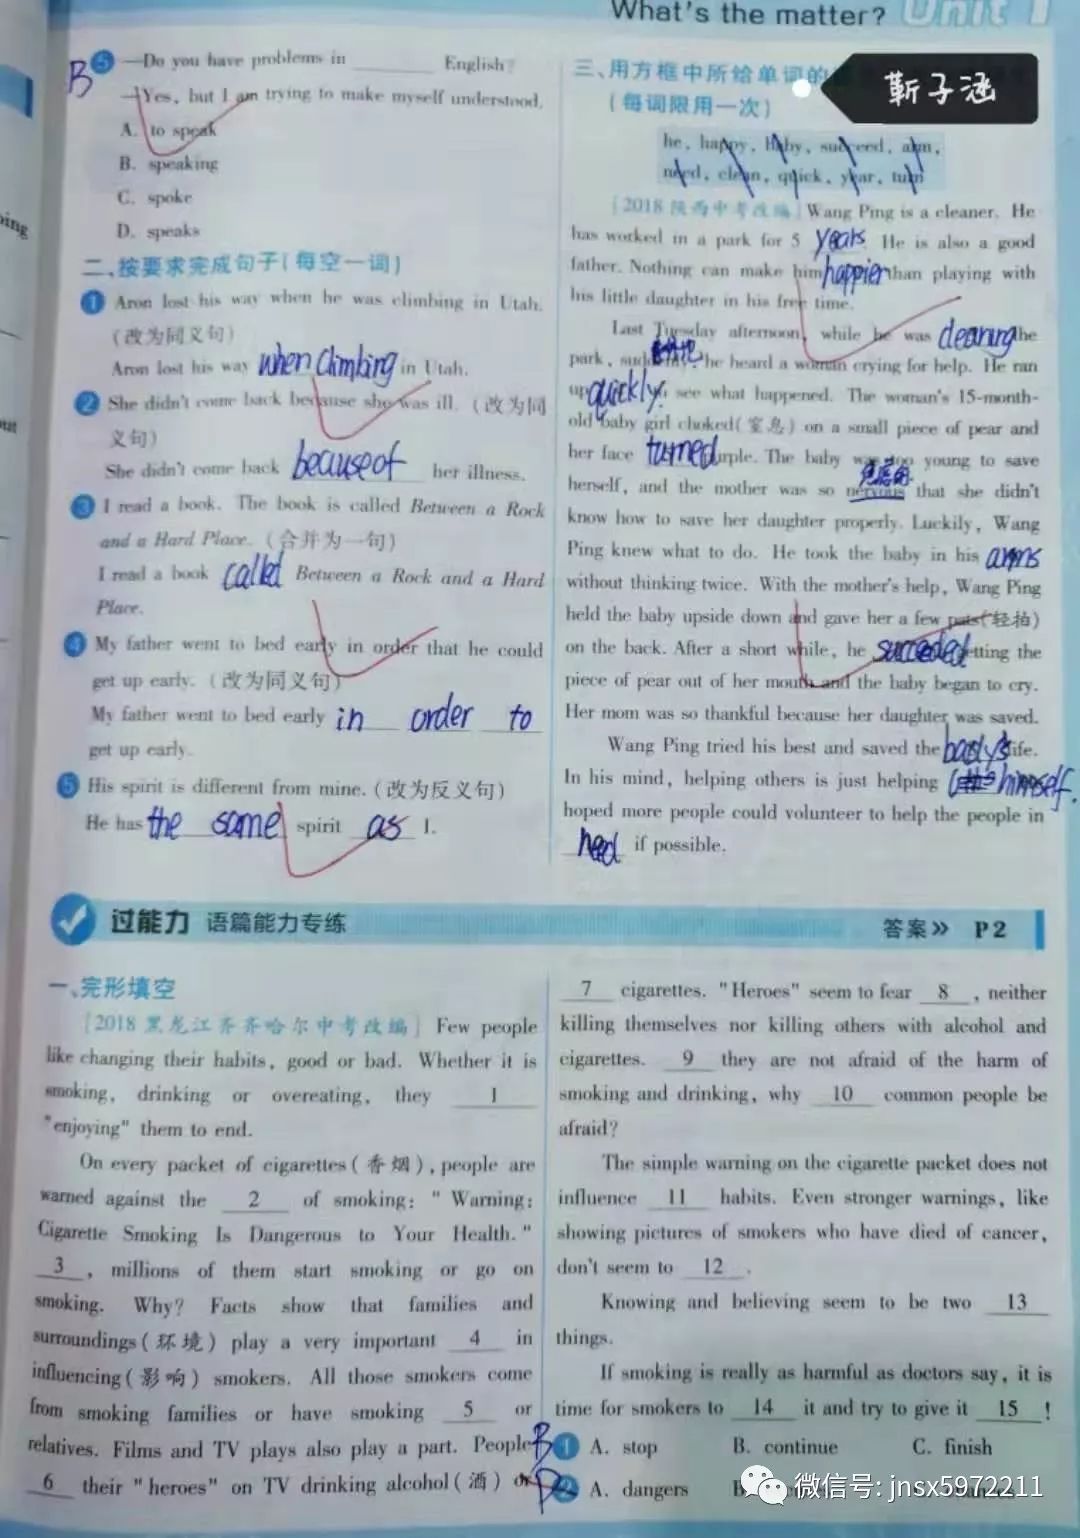 What's the matter? Unit 1
B 5 —Do you have problems in ______ English?
—Yes, but I am trying to make myself understood.
A. to speak
B. speaking
C. spoke
D. speaks
二、按要求完成句子(每空一词)
1 Aron lost his way when he was climbing in Utah.
(改为同义句)
Aron lost his way when climbing in Utah.
2 She didn't come back because she was ill. (改为同
义句)
She didn't come back because of her illness.
3 I read a book. The book is called Between a Rock
and a Hard Place. (合并为一句)
I read a book called Between a Rock and a Hard
Place.
4 My father went to bed early in order that he could
get up early. (改为同义句)
My father went to bed early in order to
get up early.
5 His spirit is different from mine. (改为反义句)
He has the same spirit as I.
三、用方框中所给单词的
靳子涵
(每词限用一次)
he, happy, baby, succeed, arm,
need, clean, quick, year, turn
[2018陕西中考改编] Wang Ping is a cleaner. He
has worked in a park for 5 years. He is also a good
father. Nothing can make him happier than playing with
his little daughter in his free time.
Last Tuesday afternoon, while he was cleaning the
park, he heard a woman crying for help. He ran
up quickly to see what happened. The woman's 15-month-
old baby girl choked(窒息) on a small piece of pear and
her face turned purple. The baby was too young to save
herself, and the mother was so nervous that she didn't
know how to save her daughter properly. Luckily, Wang
Ping knew what to do. He took the baby in his arms
without thinking twice. With the mother's help, Wang Ping
held the baby upside down and gave her a few pats(轻拍)
on the back. After a short while, he succeeded getting the
piece of pear out of her mouth and the baby began to cry.
Her mom was so thankful because her daughter was saved.
Wang Ping tried his best and saved the baby's life.
In his mind, helping others is just helping himself.
hoped more people could volunteer to help the people in
need if possible.
过能力 语篇能力专练 答案》 P2
一、完形填空
[2018黑龙江齐齐哈尔中考改编] Few people
like changing their habits, good or bad. Whether it is
smoking, drinking or overeating, they 1
"enjoying" them to end.
On every packet of cigarettes(香烟), people are
warned against the 2 of smoking: "Warning:
Cigarette Smoking Is Dangerous to Your Health."
3 , millions of them start smoking or go on
smoking. Why? Facts show that families and
surroundings(环境) play a very important 4 in
influencing(影响) smokers. All those smokers come
from smoking families or have smoking 5 or
relatives. Films and TV plays also play a part. People
6 their "heroes" on TV drinking alcohol(酒) or
7 cigarettes. "Heroes" seem to fear 8 , neither
killing themselves nor killing others with alcohol and
cigarettes. 9 they are not afraid of the harm of
smoking and drinking, why 10 common people be
afraid?
The simple warning on the cigarette packet does not
influence 11 habits. Even stronger warnings, like
showing pictures of smokers who have died of cancer,
don't seem to 12 .
Knowing and believing seem to be two 13
things.
If smoking is really as harmful as doctors say, it is
time for smokers to 14 it and try to give it 15 !
B 1 A. stop B. continue C. finish
D 2 A. dangers B.
微信号: jnsx5972211